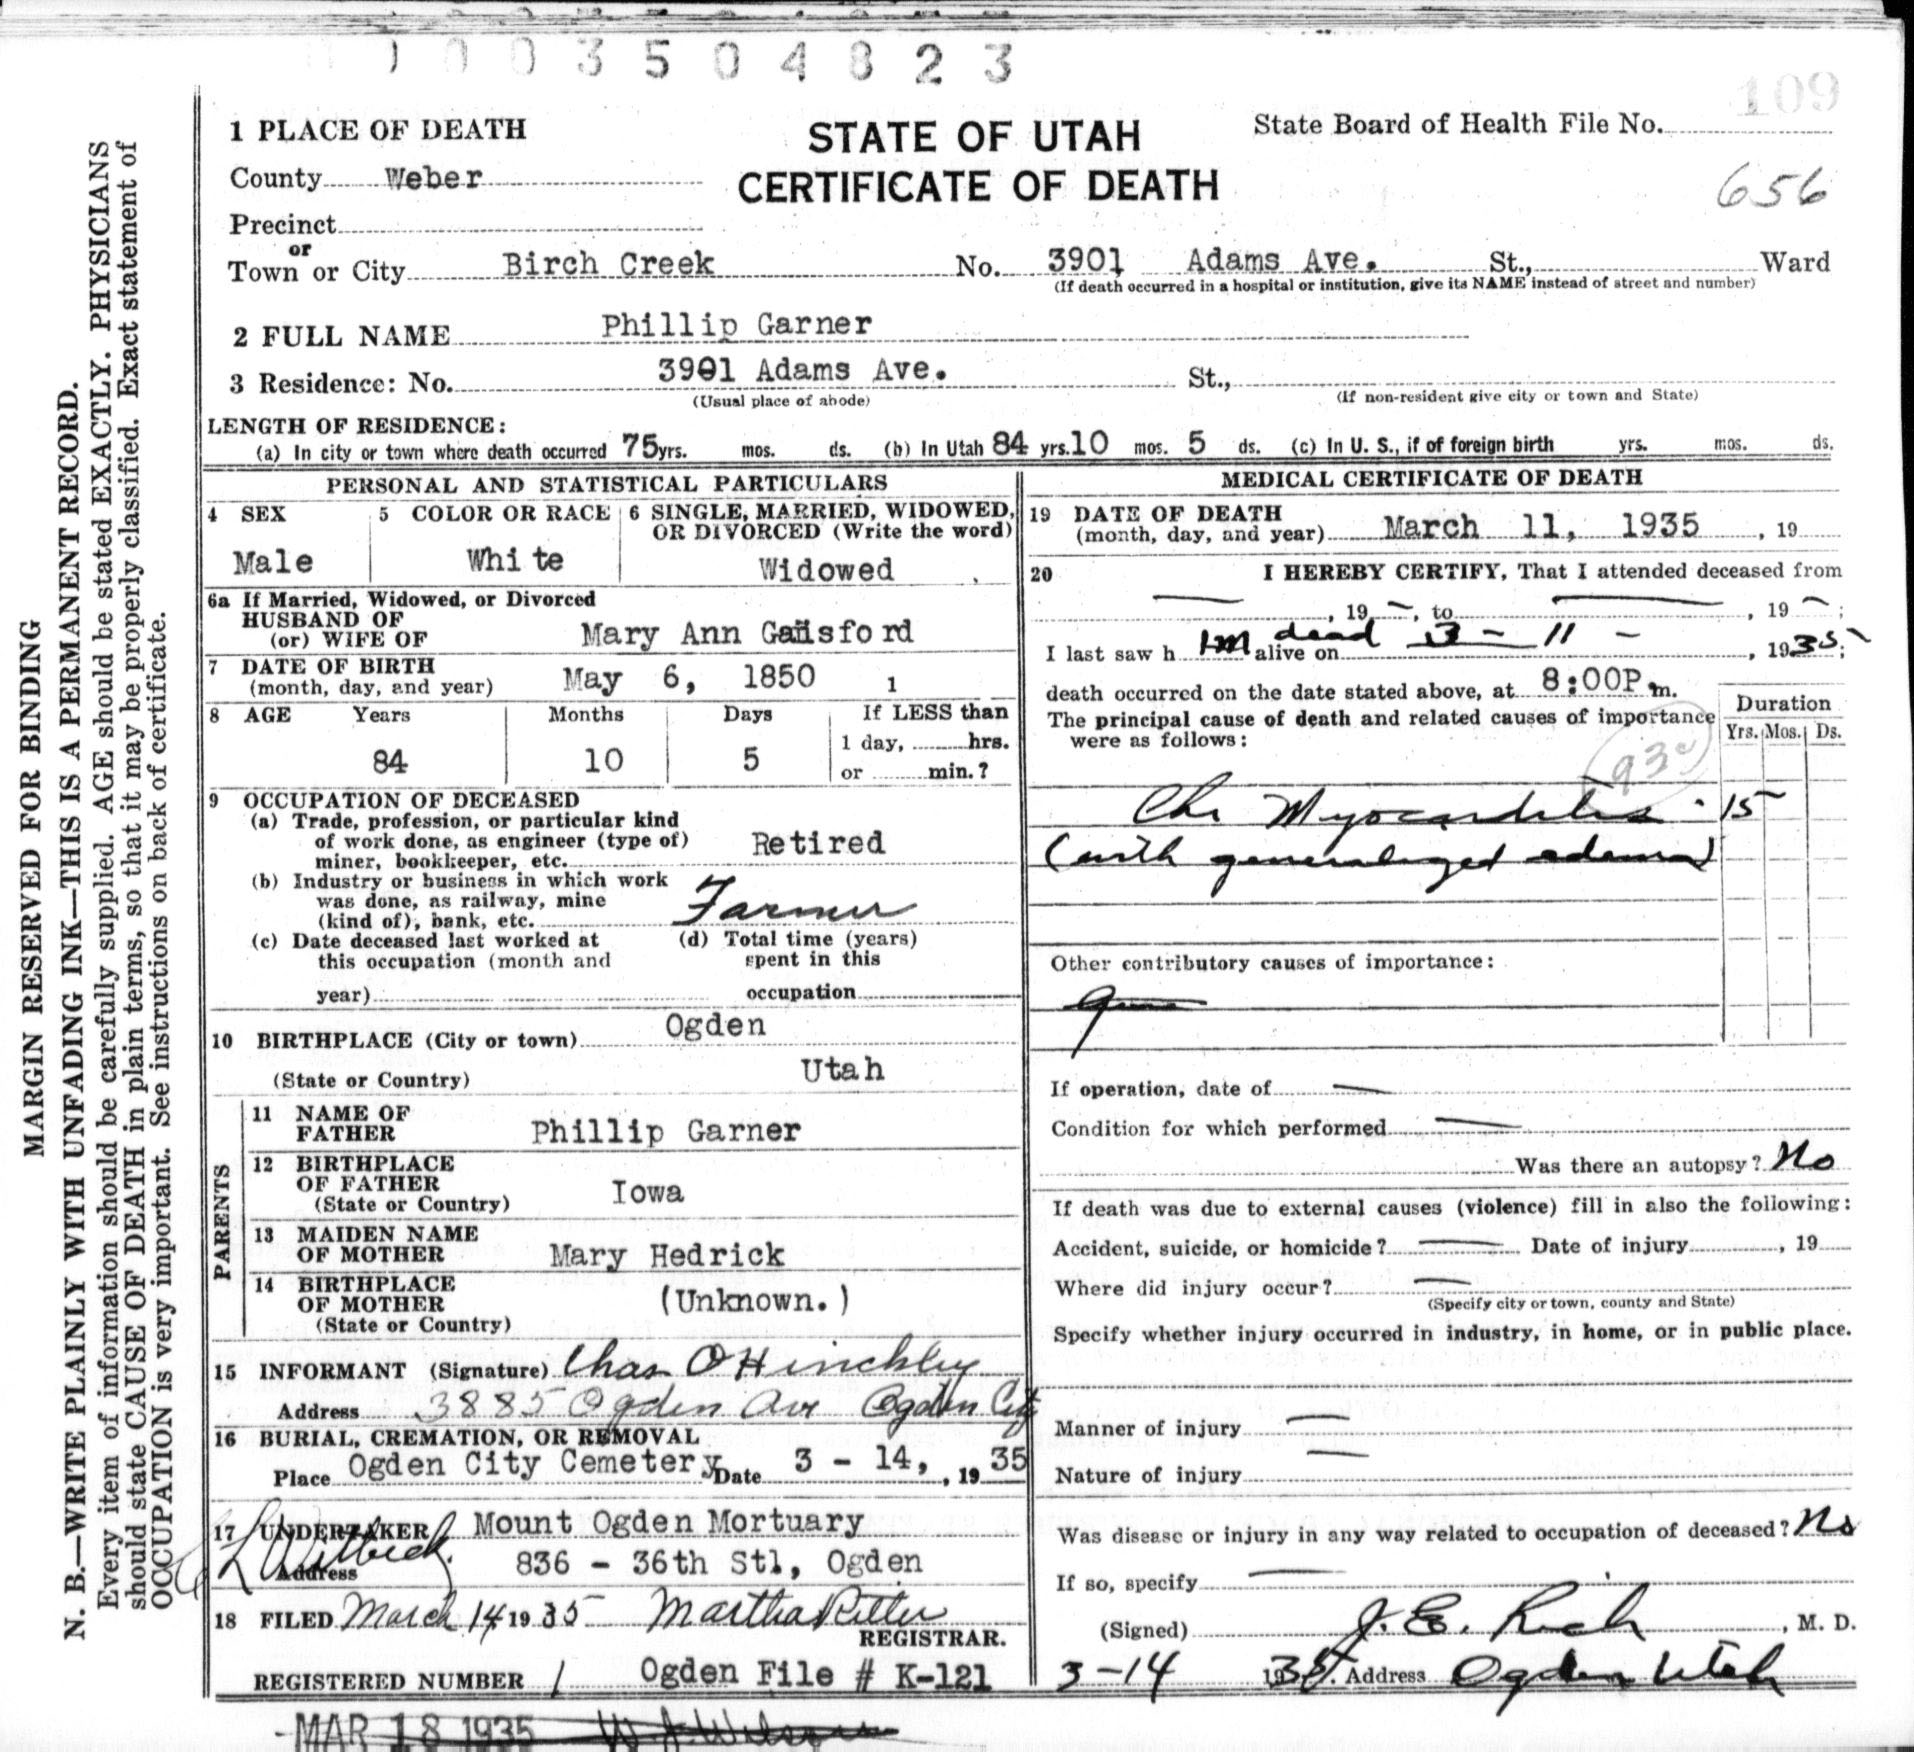 3504823
109
1 PLACE OF DEATH
STATE OF UTAH
CERTIFICATE OF DEATH
State Board of Health File No.
656
County Weber
Precinct
or
Town or City Birch Creek No. 3901 Adams Ave. St., Ward
(If death occurred in a hospital or institution, give its NAME instead of street and number)
2 FULL NAME Phillip Garner
3 Residence: No. 3901 Adams Ave. St.,
(Usual place of abode) (If non-resident give city or town and State)
LENGTH OF RESIDENCE:
(a) In city or town where death occurred 75 yrs. mos. ds. (b) In Utah 84 yrs. 10 mos. 5 ds. (c) In U. S., if of foreign birth yrs. mos. ds.
PERSONAL AND STATISTICAL PARTICULARS
4 SEX
Male
5 COLOR OR RACE
White
6 SINGLE, MARRIED, WIDOWED,
OR DIVORCED (Write the word)
Widowed
6a If Married, Widowed, or Divorced
HUSBAND OF
(or) WIFE OF Mary Ann Gansford
7 DATE OF BIRTH
(month, day, and year) May 6, 1850 1
8 AGE Years Months Days If LESS than
1 day, hrs.
84 10 5
or min.?
9 OCCUPATION OF DECEASED
(a) Trade, profession, or particular kind
of work done, as engineer (type of)
miner, bookkeeper, etc. Retired
(b) Industry or business in which work
was done, as railway, mine
(kind of), bank, etc. Farmer
(c) Date deceased last worked at
this occupation (month and
year)
(d) Total time (years)
spent in this
occupation
10 BIRTHPLACE (City or town) Ogden
(State or Country) Utah
PARENTS
11 NAME OF
FATHER Phillip Garner
12 BIRTHPLACE
OF FATHER
(State or Country) Iowa
13 MAIDEN NAME
OF MOTHER Mary Hedrick
14 BIRTHPLACE
OF MOTHER (Unknown.)
(State or Country)
15 INFORMANT (Signature) Chas O Hinckley
Address 3885 Ogden Ave Ogden City
16 BURIAL, CREMATION, OR REMOVAL
Place Ogden City Cemetery Date 3 - 14, , 19 35
17 UNDERTAKER Mount Ogden Mortuary
Address 836 - 36th Stl, Ogden
18 FILED March 14 19 35 Martha Ritter
REGISTRAR.
REGISTERED NUMBER 1 Ogden File # K-121
MAR 18 1935
MEDICAL CERTIFICATE OF DEATH
19 DATE OF DEATH
(month, day, and year) March 11, 1935 , 19
20 I HEREBY CERTIFY, That I attended deceased from
— , 19 —, to — , 19 — ;
I last saw h im dead alive on 3 - 11 - , 1935;
death occurred on the date stated above, at 8:00P.m.
The principal cause of death and related causes of importance
were as follows:
Duration
Yrs. Mos. Ds.
93c
Chr Myocarditis · 15
(with generalized edema)
Other contributory causes of importance:
If operation, date of —
Condition for which performed —
Was there an autopsy? No
If death was due to external causes (violence) fill in also the following:
Accident, suicide, or homicide? — Date of injury , 19
Where did injury occur? —
(Specify city or town, county and State)
Specify whether injury occurred in industry, in home, or in public place.
Manner of injury —
Nature of injury —
Was disease or injury in any way related to occupation of deceased? No
If so, specify —
(Signed) J. E. Rich , M. D.
3-14 1935. Address Ogden Utah
MARGIN RESERVED FOR BINDING
N. B.—WRITE PLAINLY WITH UNFADING INK—THIS IS A PERMANENT RECORD.
Every item of information should be carefully supplied. AGE should be stated EXACTLY. PHYSICIANS
should state CAUSE OF DEATH in plain terms, so that it may be properly classified. Exact statement of
OCCUPATION is very important. See instructions on back of certificate.